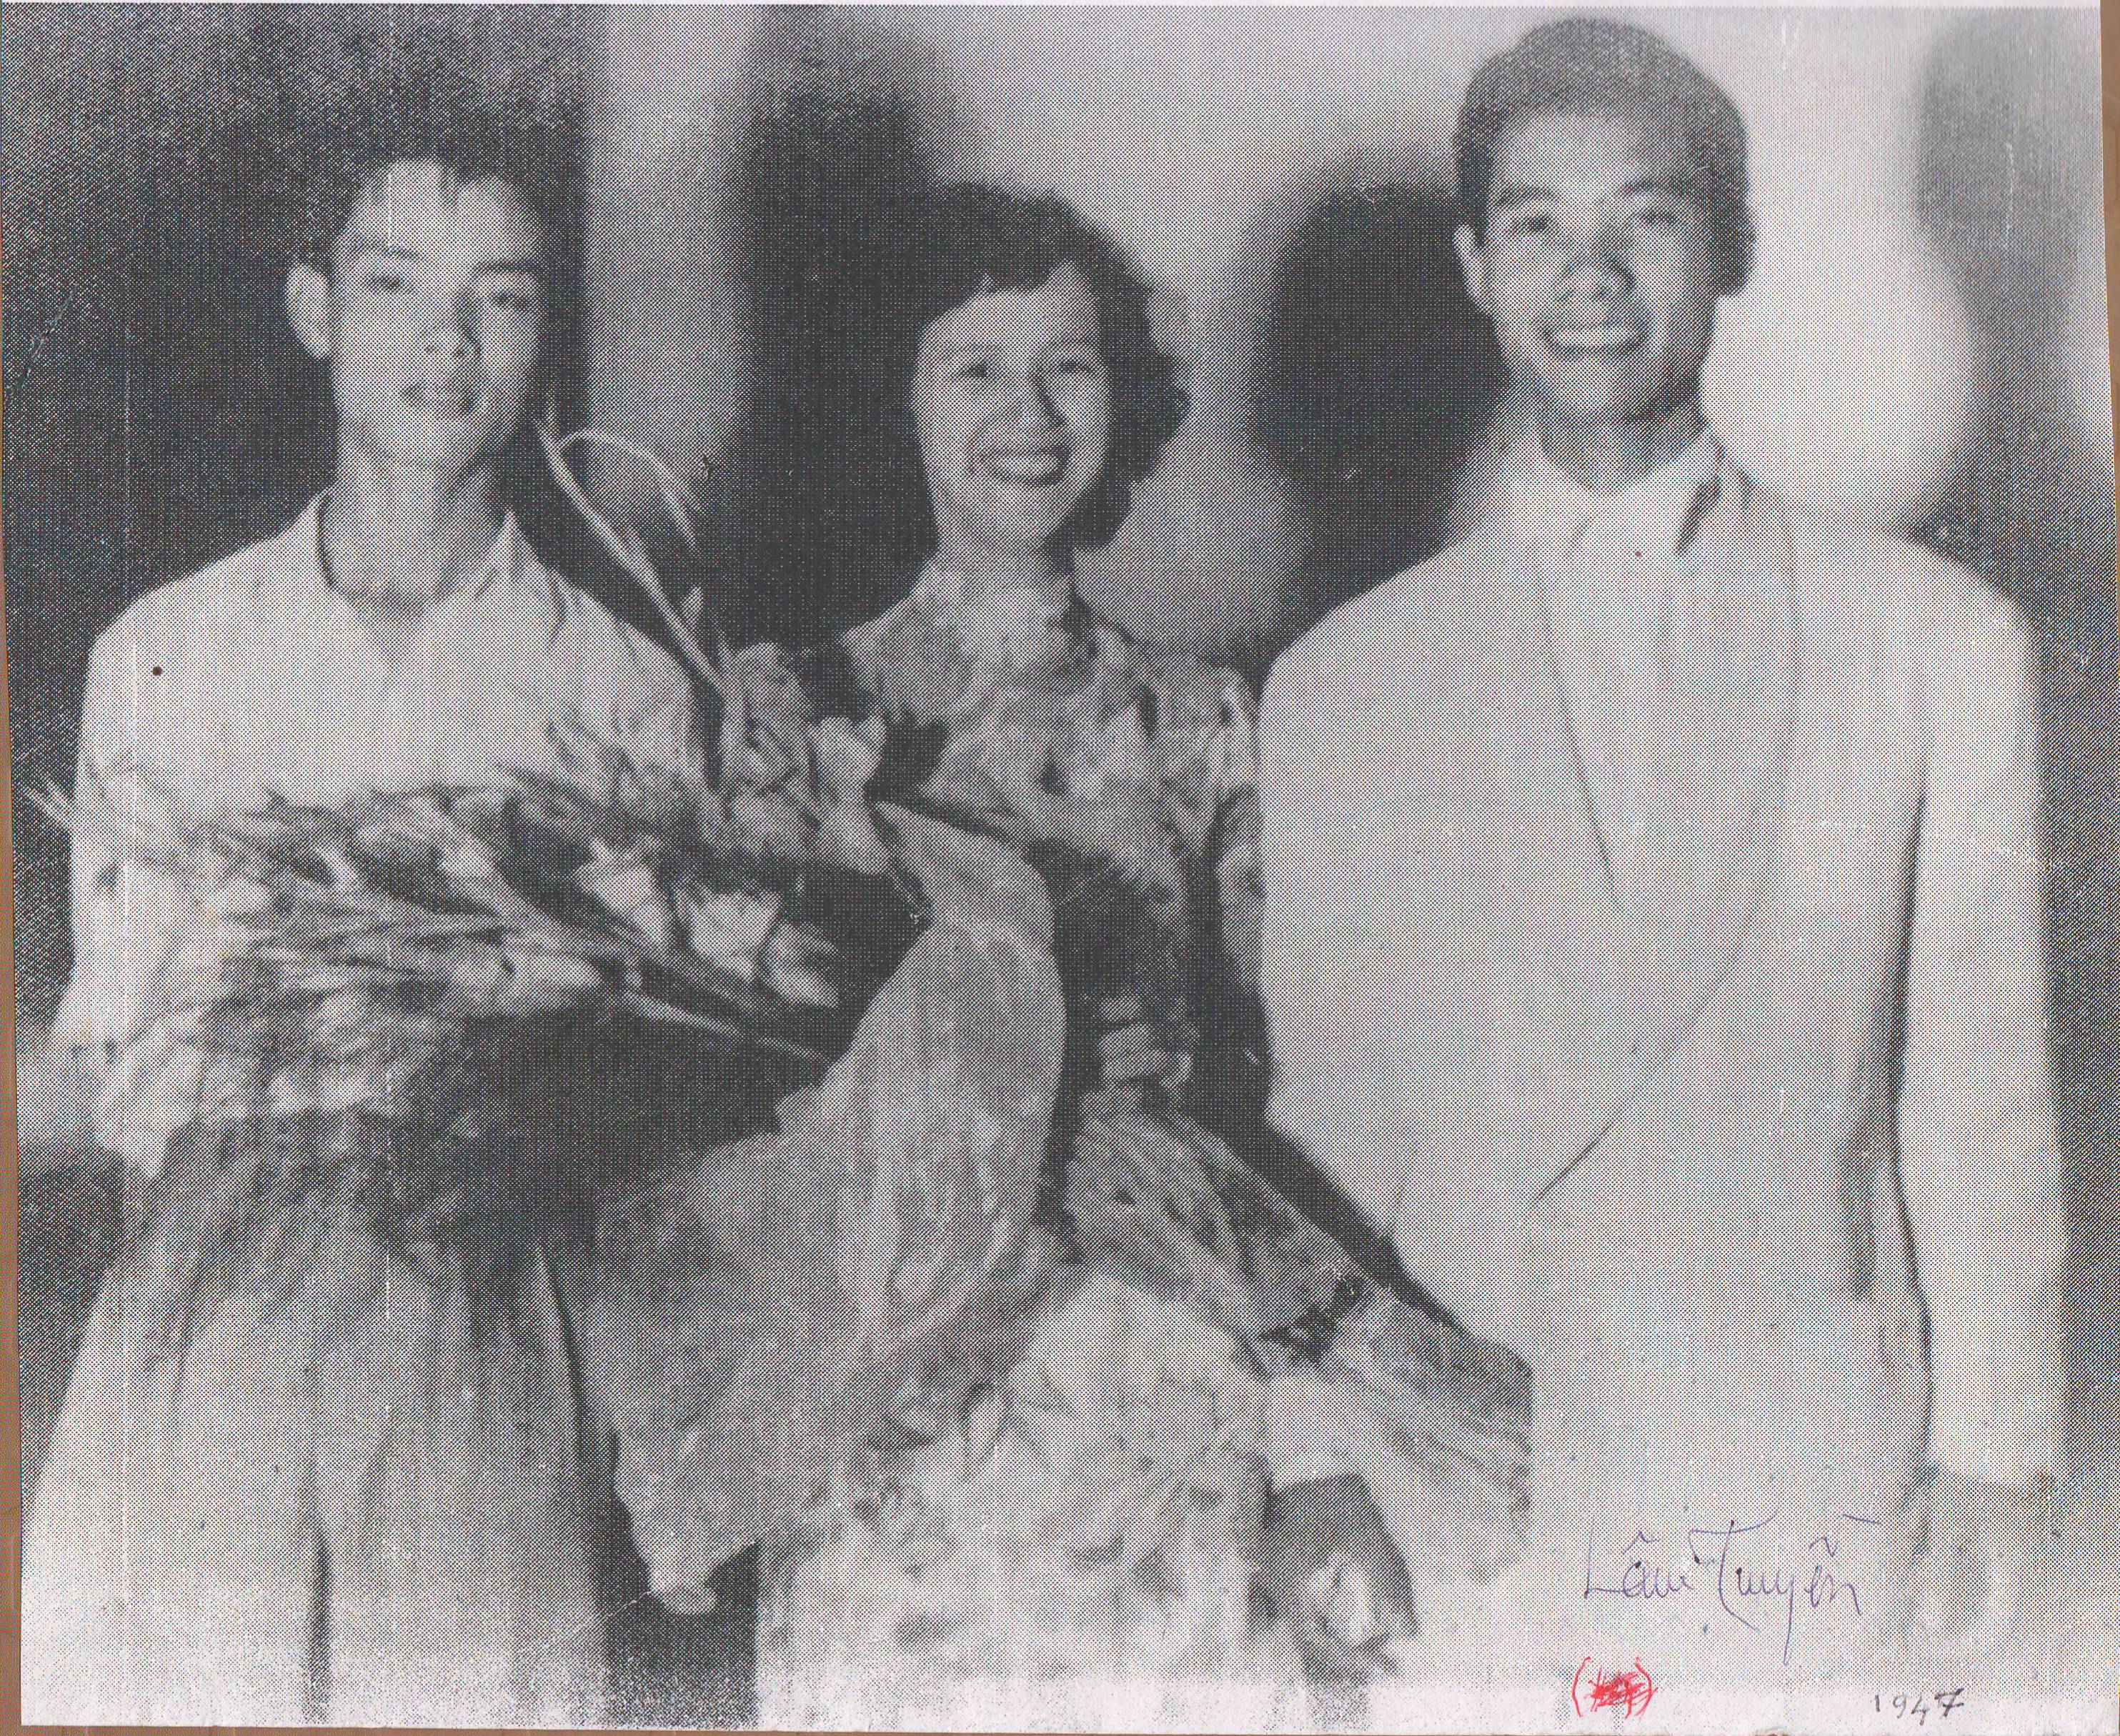 Lâm Tuyền
1947